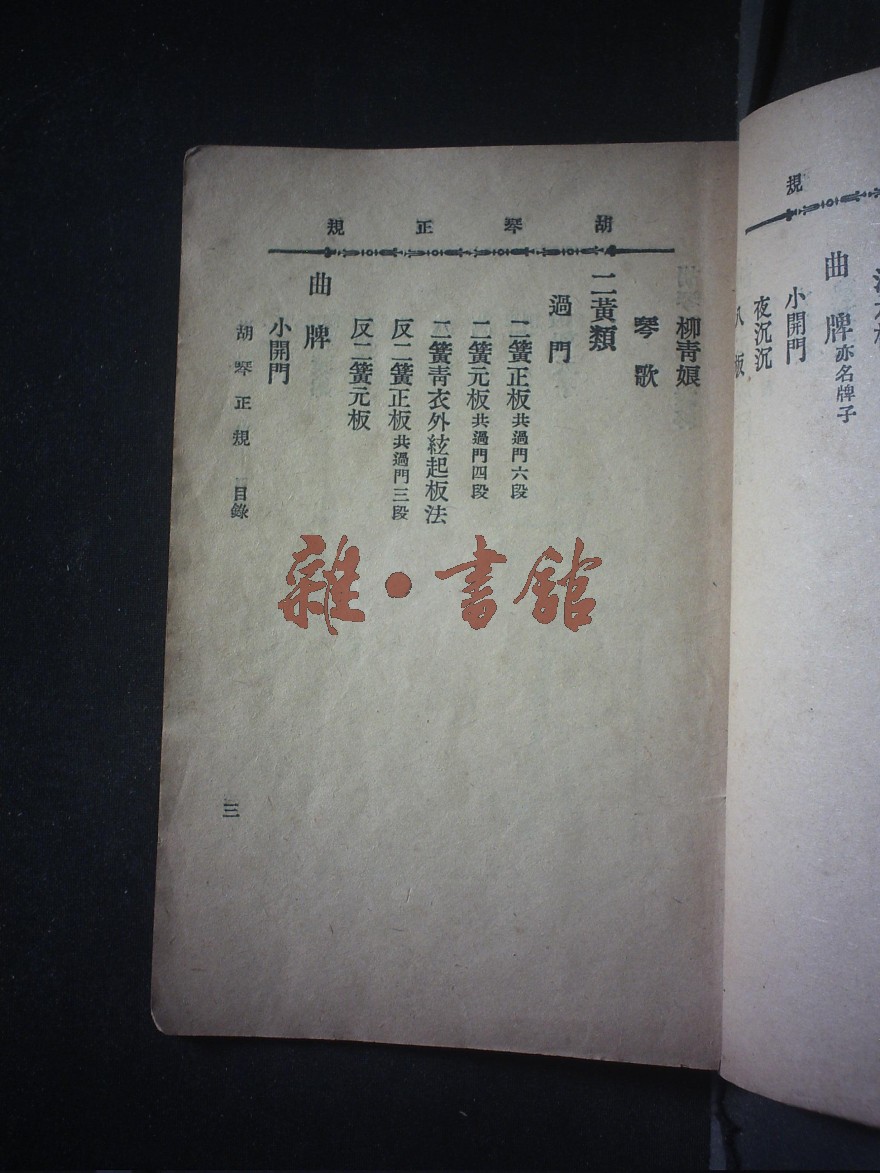 胡琴正規
柳青娘
琴歌
二黃類
過門
二簧正板共過門六段
二簧元板共過門四段
二簧青衣外絃起板法
反二簧正板共過門三段
反二簧元板
曲牌
小開門
胡琴正規 目錄
三
規
曲牌亦名牌子
小開門
夜沉沉
雜·書館